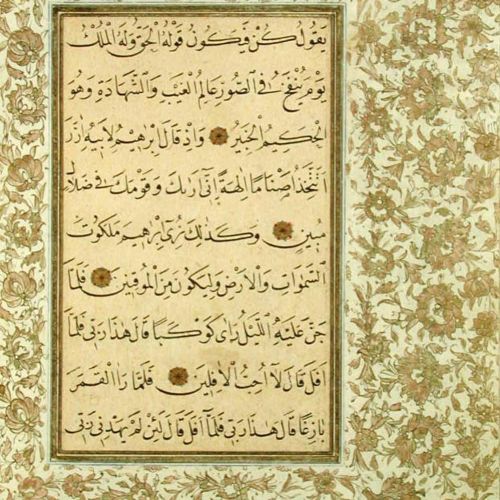 يَقُولُ كُنْ فَيَكُونُ قَوْلُهُ الْحَقُّ وَلَهُ الْمُلْكُ
يَوْمَ يُنْفَخُ فِي الصُّورِ عَالِمُ الْغَيْبِ وَالشَّهَادَةِ وَهُوَ
الْحَكِيمُ الْخَبِيرُ وَإِذْ قَالَ إِبْرٰهِيمُ لِأَبِيهِ اٰزَرَ
اَتَتَّخِذُ اَصْنَامًا اٰلِهَةً اِنِّي اَرٰيكَ وَقَوْمَكَ فِي ضَلَالٍ
مُبِينٍ وَكَذٰلِكَ نُرِي اِبْرٰهِيمَ مَلَكُوتَ
السَّمٰوَاتِ وَالْاَرْضِ وَلِيَكُونَ مِنَ الْمُوقِنِينَ فَلَمَّا
جَنَّ عَلَيْهِ اللَّيْلُ رَاٰى كَوْكَبًا قَالَ هٰذَا رَبِّي فَلَمَّا
اَفَلَ قَالَ لَا اُحِبُّ الْاٰفِلِينَ فَلَمَّا رَاَ الْقَمَرَ
بَازِغًا قَالَ هٰذَا رَبِّي فَلَمَّا اَفَلَ قَالَ لَئِنْ لَمْ يَهْدِنِي رَبِّي